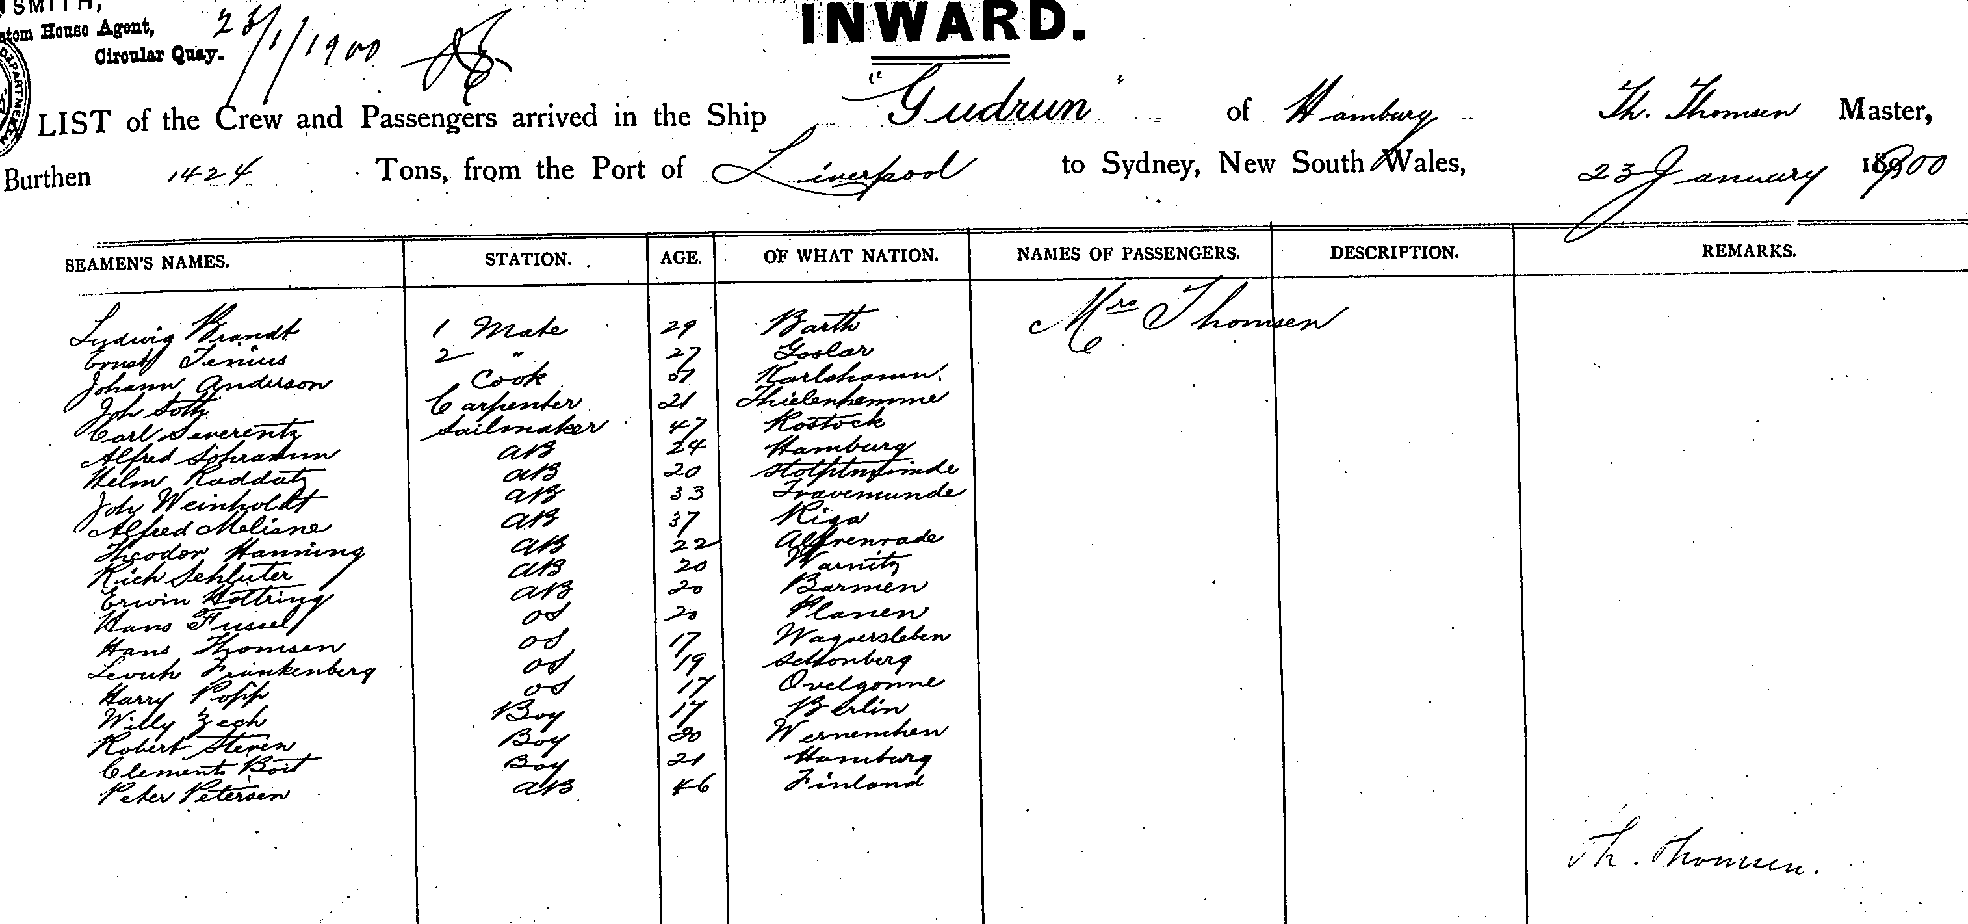 SMITH,
Custom House Agent,
Circular Quay.
23/1/1900
INWARD.
LIST of the Crew and Passengers arrived in the Ship "Gudrun" of Hamburg Th. Thomsen Master,
Burthen 1424 Tons, from the Port of Liverpool to Sydney, New South Wales, 23 January 1900
SEAMEN'S NAMES. STATION. AGE. OF WHAT NATION. NAMES OF PASSENGERS. DESCRIPTION. REMARKS.
Ludwig Brandt 1 Mate 29 Barth Mrs Thomsen
Ernst Tenius 2 " 27 Goslar
Johann Anderson Cook Karlshamn.
Joh Soth Carpenter 21 Thielenhemme
Carl Severentz Sailmaker 47 Rostock
Alfred Schramm AB 24 Hamburg
Helm Raddatz AB 20 Stolptmünde
Joh Weinholdt AB 33 Travemunde
Alfred Melisne AB 37 Riga
Theodor Hanning AB 22 Appenrade
Rich Schluter AB 20 Warnitz
Erwin Hottring AB 20 Barmen
Hans Fussel OS 20 Planen
Hans Thomsen OS 17 Wagersleben
Frankenberg OS 19 Schonberg
Harry Popp OS 17 Ovelgonne
Willy Zech Boy 17 Berlin
Robert Steven Boy 20 Wernenchen
Clements Boit Boy 21 Hamburg
Peter Petersen AB 46 Finland
Th. Thomsen.